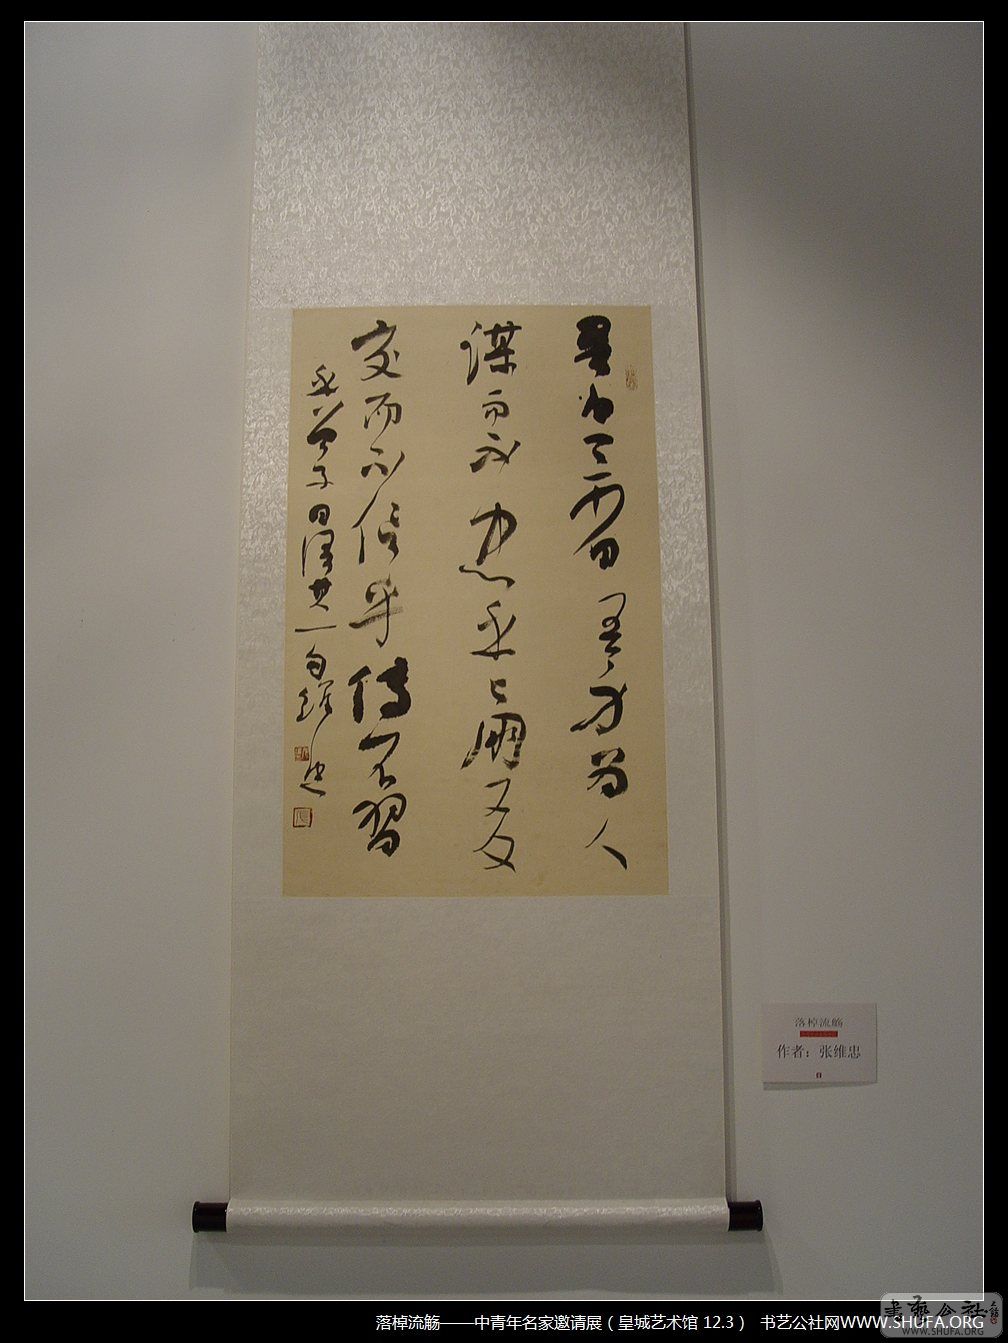 吾日三省吾身為人
謀而不忠乎与朋友
交而不信乎傳不習
乎 曾子曰 其一句 維忠
落棹流觞
作者：张维忠
書藝公社
WWW.SHUFA.ORG
落棹流觞——中青年名家邀请展（皇城艺术馆 12.3） 书艺公社网WWW.SHUFA.ORG